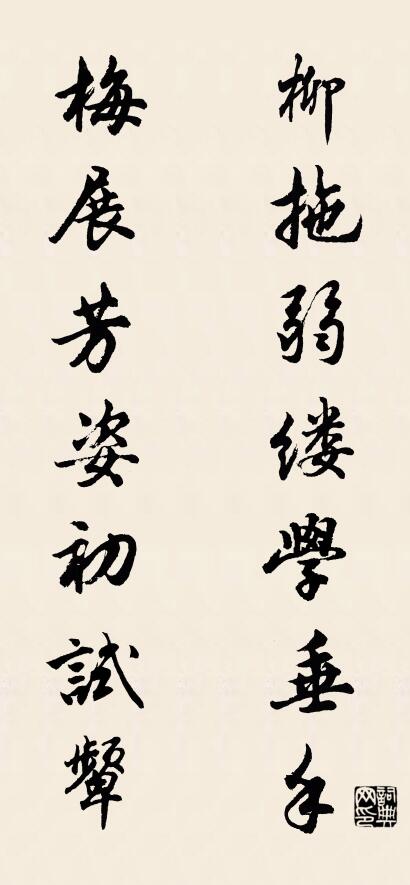 柳拖弱缕學垂手
梅展芳姿初試顰
詞典网印